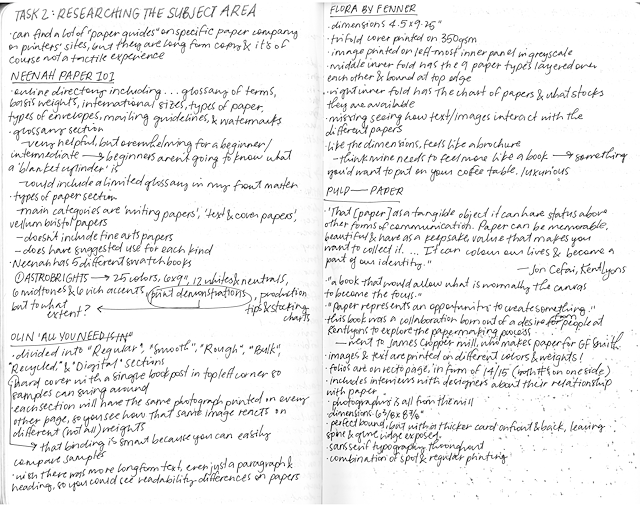 TASK 2: RESEARCHING THE SUBJECT AREA
·can find a lot of "paper guides" on specific paper company
or printers' sites, but they are long form copy & it's of
course not a tactile experience
NEENAH PAPER 101
·online directory including... glossary of terms,
basis weights, international sizes, types of paper,
types of envelopes, mailing guidelines, & watermarks
·glossary section
-very helpful, but overwhelming for a beginner/
intermediate → beginners aren't going to know what
a 'blanket cylinder' is
-could include a limited glossary in my front matter
·types of paper section
-main categories are 'writing papers', 'text & cover papers',
vellum bristol papers
-doesn't include fine arts papers
-does have suggested use for each kind
·Neenah has 5 different swatchbooks
① ASTROBRIGHTS → 25 colors, 6x9", 12 whites & neutrals,
6 midtones & 6 rich accents, print demonstrations, production
but to what extent? tips & stocking
charts
OLIN 'ALL YOU NEED IS IN'
·divided into "Regular", "Smooth", "Rough", "Bulk",
"Recycled" & "Digital" sections
·hard cover with a single book post in top left corner so
samples can swing around
·each section will have the same photograph printed on every
other page, so you see how that same image reacts on
different (not all) weights
→ that binding is smart because you can easily
compare samples
·wish there was more longform text, even just a paragraph &
heading, so you could see readability differences on papers
FLORA BY FENNER
·dimensions 4.5x9.25"
·trifold cover printed on 350gsm
·image printed on left-most inner panel in greyscale
·middle inner fold has the 9 paper types layered over
each other & bound at top edge
·right inner fold has the chart of papers & what stocks
they are available
·missing seeing how text/images interact with the
different papers
·like the dimensions, feels like a brochure
-think mine needs to feel more like a book → something
you'd want to put on your coffee table, luxurious
PULP — PAPER
·"That [paper] as a tangible object it can have status above
other forms of communication. Paper can be memorable,
beautiful & have as a keepsake value that makes you
want to collect it. ... It can colour our lives & become a
part of our identity."
— Jon Cefai, Kentlyons
·"a book that would allow what is normally the canvas
to become the focus."
·"Paper represents an opportunity to create something."
·this book was a collaboration born out of a desire for people at
Kentlyons to explore the papermaking process
— went to James Cropper mill, who makes paper for GF Smith
·images & text are printed on different colors & weights!
·folios are on recto page, in form of 14/15 (both #s on one side)
·includes interviews with designers about their relationship
with paper
·photography is all from the mill
·dimensions 6 3/8 x 8 7/8"
·perfect bound, but with a thicker card on front & back, leaving
spine & glue ridge exposed
·sans serif typography throughout
·combination of spot & regular printing